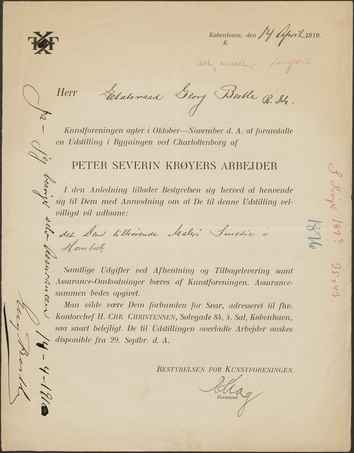 København, den 14 April 1910.
K
Herr Etatsraad Georg Bestle R. Dbg.
Kunstforeningen agter i Oktober—November d. A. at foranstalte
en Udstilling i Bygningen ved Charlottenborg af
PETER SEVERIN KRØYERS ARBEJDER
I den Anledning tillader Bestyrelsen sig herved at henvende
sig til Dem med Anmodning om at De til denne Udstilling vel-
villigt vil udlaane:
det Dem tilhørende Maleri Smedie i
Hornbæk
Samtlige Udgifter ved Afhentning og Tilbagelevering samt
Assurance-Omkostninger bæres af Kunstforeningen. Assurance-
summen bedes opgivet.
Man vilde være Dem forbunden for Svar, adresseret til fhv.
Kontorchef H. CHR. CHRISTENSEN, Sølvgade 84, 4. Sal, København,
saa snart belejligt. De til Udstillingen overladte Arbejder ønskes
disponible fra 29. Septbr. d. A.
BESTYRELSEN FOR KUNSTFORENINGEN.
Formand
Ja – jeg
14-4-1910
Georg Bestle
1816